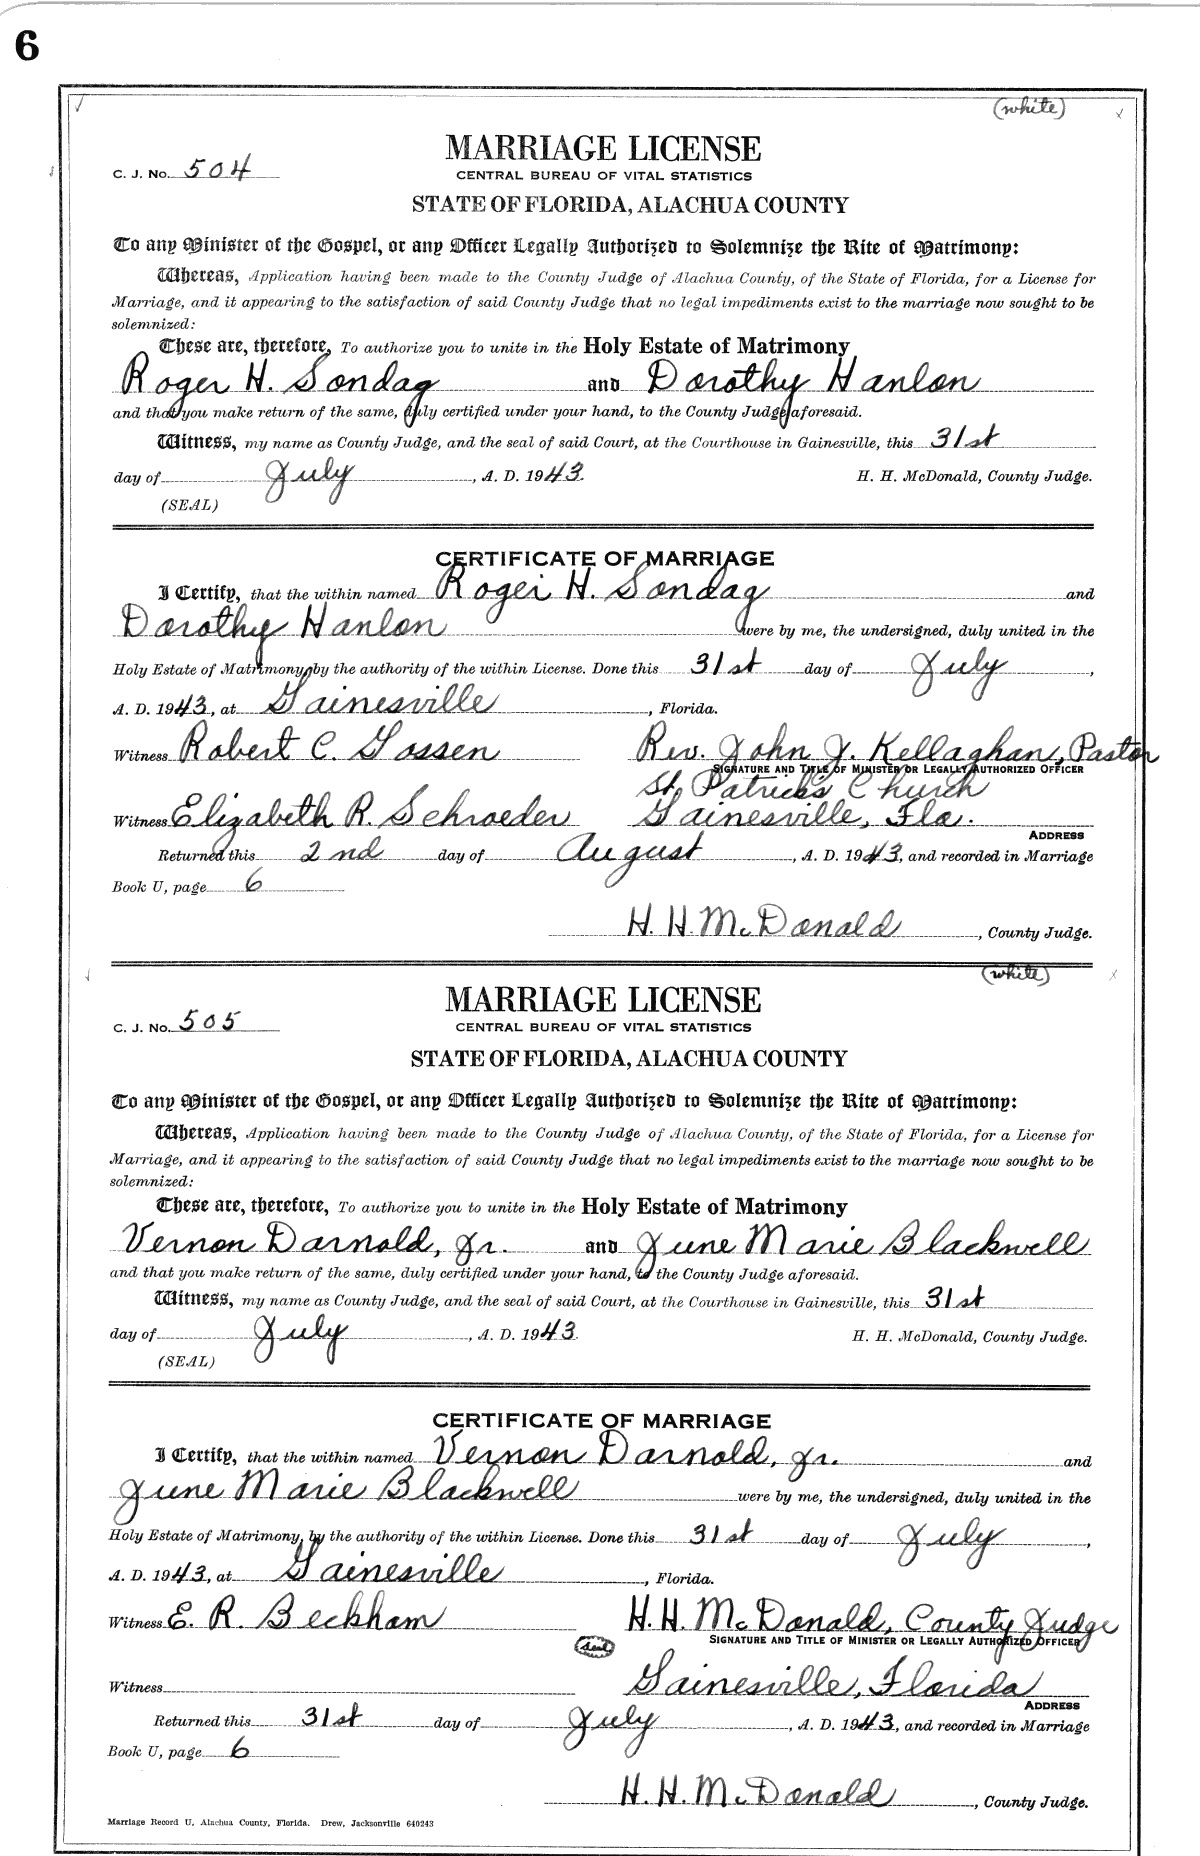 6
(white)
MARRIAGE LICENSE
C. J. No. 504
CENTRAL BUREAU OF VITAL STATISTICS
STATE OF FLORIDA, ALACHUA COUNTY
To any Minister of the Gospel, or any Officer Legally Authorized to Solemnize the Rite of Matrimony:
Whereas, Application having been made to the County Judge of Alachua County, of the State of Florida, for a License for
Marriage, and it appearing to the satisfaction of said County Judge that no legal impediments exist to the marriage now sought to be
solemnized:
These are, therefore, To authorize you to unite in the Holy Estate of Matrimony
Roger H. Sondag and Dorothy Hanlon
and that you make return of the same, duly certified under your hand, to the County Judge aforesaid.
Witness, my name as County Judge, and the seal of said Court, at the Courthouse in Gainesville, this 31st
day of July, A. D. 1943. H. H. McDonald, County Judge.
(SEAL)
CERTIFICATE OF MARRIAGE
I Certify, that the within named Roger H. Sondag and
Dorothy Hanlon were by me, the undersigned, duly united in the
Holy Estate of Matrimony, by the authority of the within License. Done this 31st day of July,
A. D. 1943, at Gainesville, Florida.
Witness Robert C. Gossen Rev. John J. Kellaghan, Pastor
SIGNATURE AND TITLE OF MINISTER OR LEGALLY AUTHORIZED OFFICER
St. Patrick's Church
Witness Elizabeth R. Schroeder Gainesville, Fla.
ADDRESS
Returned this 2nd day of August, A. D. 1943, and recorded in Marriage
Book U, page 6
H. H. McDonald, County Judge.
(white)
MARRIAGE LICENSE
C. J. No. 505
CENTRAL BUREAU OF VITAL STATISTICS
STATE OF FLORIDA, ALACHUA COUNTY
To any Minister of the Gospel, or any Officer Legally Authorized to Solemnize the Rite of Matrimony:
Whereas, Application having been made to the County Judge of Alachua County, of the State of Florida, for a License for
Marriage, and it appearing to the satisfaction of said County Judge that no legal impediments exist to the marriage now sought to be
solemnized:
These are, therefore, To authorize you to unite in the Holy Estate of Matrimony
Vernon Darnold, Jr. and June Marie Blackwell
and that you make return of the same, duly certified under your hand, to the County Judge aforesaid.
Witness, my name as County Judge, and the seal of said Court, at the Courthouse in Gainesville, this 31st
day of July, A. D. 1943. H. H. McDonald, County Judge.
(SEAL)
CERTIFICATE OF MARRIAGE
I Certify, that the within named Vernon Darnold, Jr. and
June Marie Blackwell were by me, the undersigned, duly united in the
Holy Estate of Matrimony, by the authority of the within License. Done this 31st day of July,
A. D. 1943, at Gainesville, Florida.
Witness E. R. Beckham H. H. McDonald, County Judge
SIGNATURE AND TITLE OF MINISTER OR LEGALLY AUTHORIZED OFFICER
(seal)
Witness Gainesville, Florida
ADDRESS
Returned this 31st day of July, A. D. 1943, and recorded in Marriage
Book U, page 6
H. H. McDonald, County Judge.
Marriage Record U, Alachua County, Florida. Drew, Jacksonville 640243